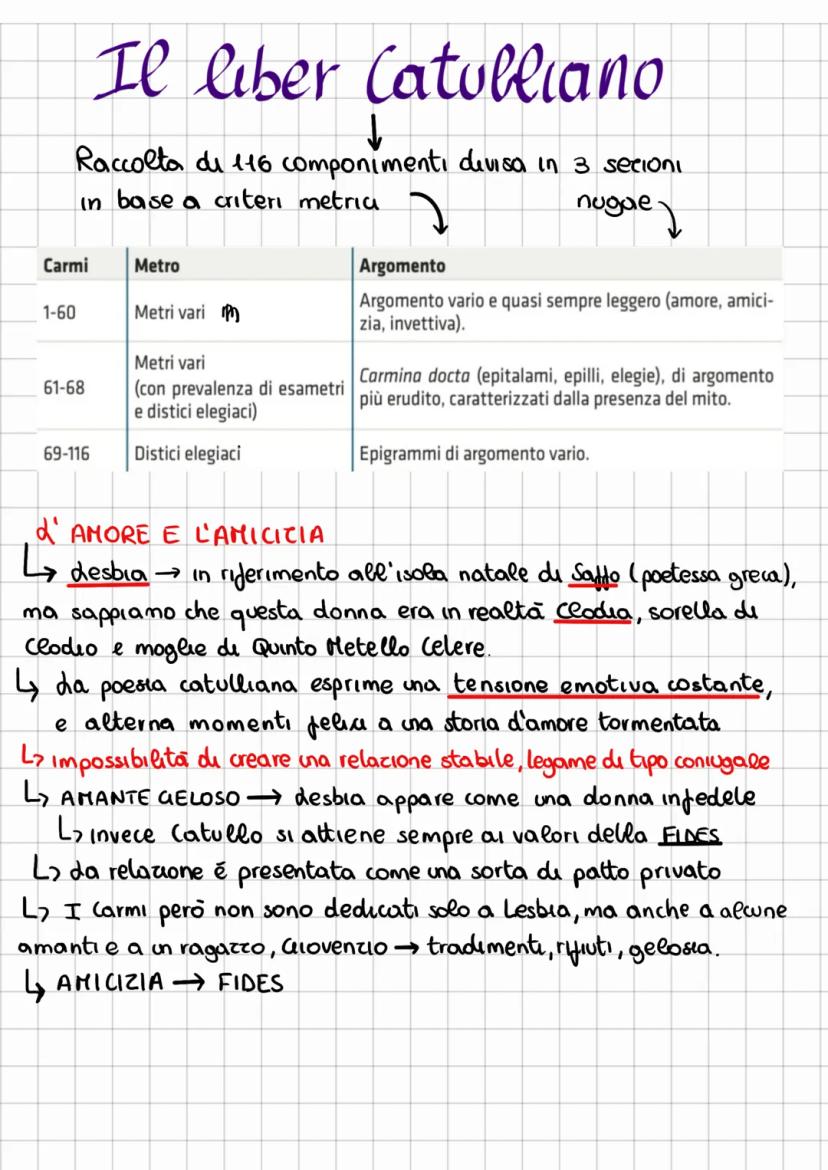 Il liber Catulliano
Raccolta di 116 componimenti divisa in 3 sezioni
in base a criteri metrici nugae
Carmi Metro Argomento
1-60 Metri vari Argomento vario e quasi sempre leggero (amore, amici-
zia, invettiva).
61-68 Metri vari
(con prevalenza di esametri
e distici elegiaci)
Carmina docta (epitalami, epilli, elegie), di argomento
più erudito, caratterizzati dalla presenza del mito.
69-116 Distici elegiaci Epigrammi di argomento vario.
L' AMORE E L'AMICIZIA
↳ Lesbia → in riferimento all'isola natale di Saffo (poetessa greca),
ma sappiamo che questa donna era in realtà Clodia, sorella di
Clodio e moglie di Quinto Metello Celere.
↳ La poesia catulliana esprime una tensione emotiva costante,
e alterna momenti felici a una storia d'amore tormentata
↳ impossibilità di creare una relazione stabile, legame di tipo coniugale
↳ AMANTE GELOSO → Lesbia appare come una donna infedele
↳ invece Catullo si attiene sempre ai valori della FIDES
↳ La relazione é presentata come una sorta di patto privato
↳ I Carmi però non sono dedicati solo a Lesbia, ma anche a alcune
amanti e a un ragazzo, Giovenzio → tradimenti, rifiuti, gelosia.
↳ AMICIZIA → FIDES